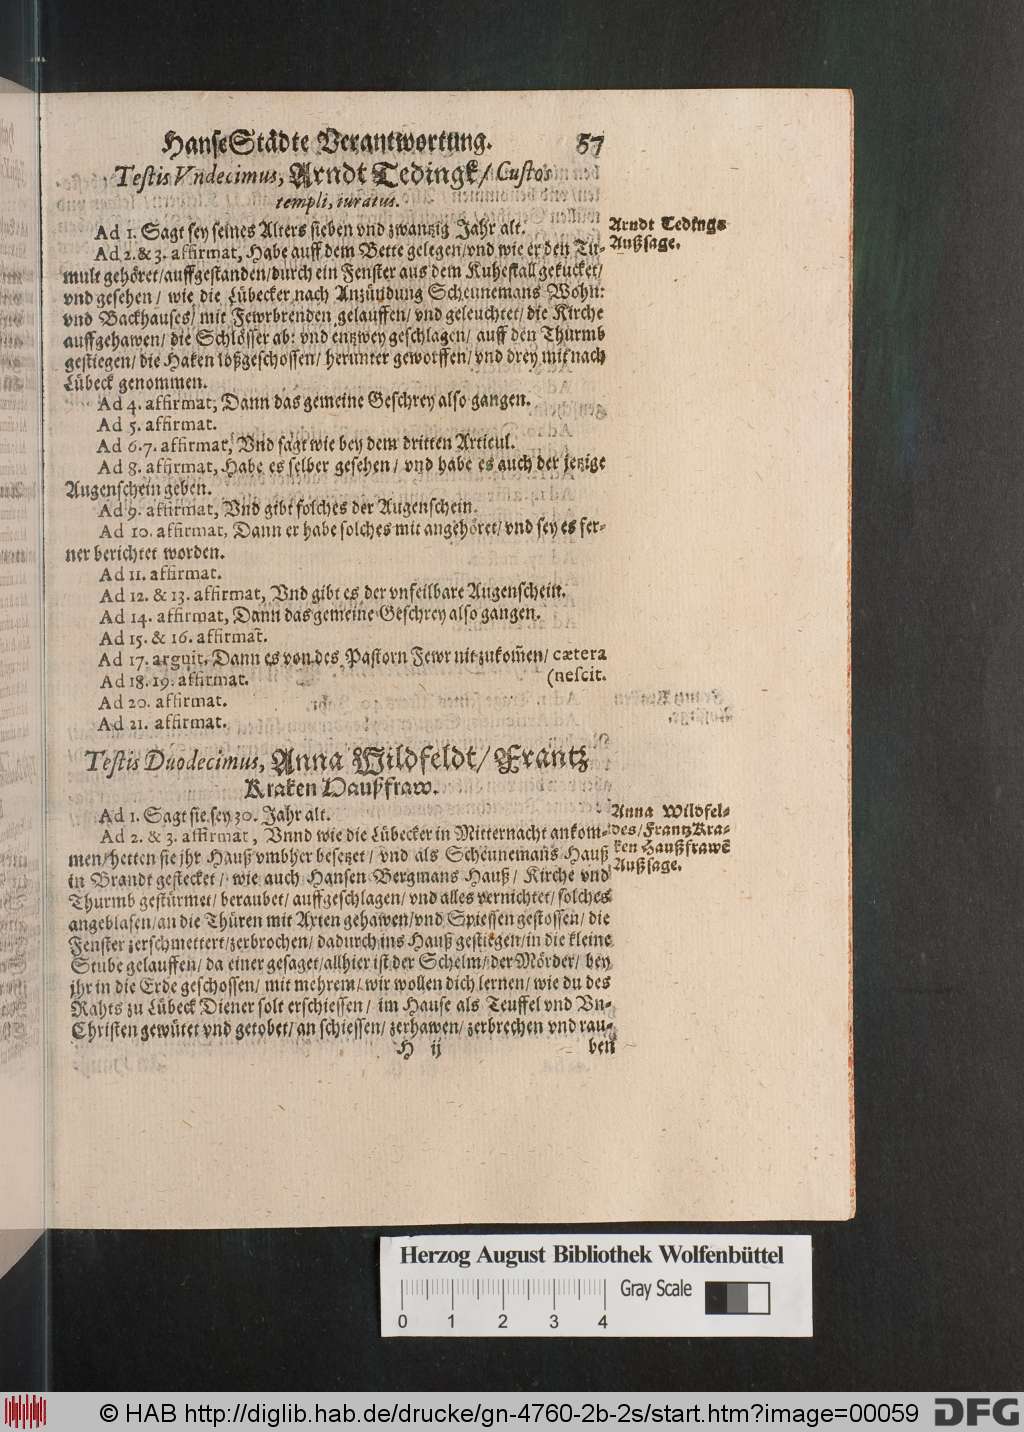 HanseStädte Verantwortung. 57
Testis Vndecimus, Arndt Tedingk/ Custos
templi, iuratus.
Ad 1. Sagt sey seines Alters sieben vnd zwantzig Jahr alt.
Arndt Tedings
Außsage.
Ad 2. & 3. affirmat, Habe auff dem Bette gelegen/vnd wie er den Tu-
mult gehöret/auffgestanden/durch ein Fenster aus dem Kuhestall gekucket/
vnd gesehen/ wie die Lübecker nach Anzündung Scheunemans Wohn:
vnd Backhauses/ mit Fewrbrenden gelauffen/ vnd geleuchtet/ die Kirche
auffgehawen/ die Schlösser ab: vnd entzwey geschlagen/ auff den Thurmb
gestiegen/ die Haken loßgeschossen/ herunter geworffen/ vnd drey mit nach
Lübeck genommen.
Ad 4. affirmat, Dann das gemeine Geschrey also gangen.
Ad 5. affirmat.
Ad 6. 7. affirmat, Vnd sagt wie bey dem dritten Articul.
Ad 8. affirmat, Habe es selber gesehen/ vnd habe es auch der jetzige
Augenschein geben.
Ad 9. affirmat, Vnd gibt solches der Augenschein.
Ad 10. affirmat, Dann er habe solches mit angehöret/ vnd sey es fer-
ner berichtet worden.
Ad 11. affirmat.
Ad 12. & 13. affirmat, Vnd gibt es der vnfeilbare Augenschein.
Ad 14. affirmat, Dann das gemeine Geschrey also gangen.
Ad 15. & 16. affirmat.
Ad 17. arguit, Dann es von des Pastorn Fewr nit zukom̃en/ cætera
Ad 18. 19. affirmat. (nescit.
Ad 20. affirmat.
Ad 21. affirmat.
Testis Duodecimus, Anna Wildfeldt/ Frantz
Kraken Haußfraw.
Ad 1. Sagt sie sey 30. Jahr alt.
Anna Wildfel-
des/ Frantz Kra-
ken Haußfrawẽ
Außsage.
Ad 2. & 3. affirmat, Vnnd wie die Lübecker in Mitternacht ankom-
men/hetten sie jhr Hauß vmbher besetzet/ vnd als Scheunemans Hauß
in Brandt gestecket/ wie auch Hansen Bergmans Hauß/ Kirche vnd
Thurmb gestürmet/ beraubet/ auffgeschlagen/ vnd alles vernichtet/ solches
angeblasen/an die Thüren mit Axten gehawen/vnd Spiessen gestossen/ die
Fenster zerschmettert/zerbrochen/ dadurch ins Hauß gestiegen/in die kleine
Stube gelauffen/ da einer gesaget/allhier ist der Schelm/ der Mörder/ bey
jhr in die Erde geschossen/ mit mehrem/ wir wollen dich lernen/ wie du des
Rahts zu Lübeck Diener solt erschiessen/ im Hause als Teuffel vnd Vn-
Christen gewütet vnd getobet/ an schiessen/ zerhawen/ zerbrechen vnd rau-
H ij ben
Herzog August Bibliothek Wolfenbüttel
Gray Scale
0 1 2 3 4
© HAB http://diglib.hab.de/drucke/gn-4760-2b-2s/start.htm?image=00059 DFG